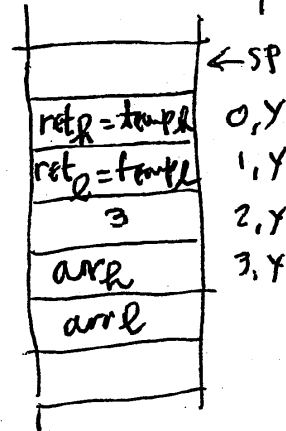 ←SP
ret_h = temp_h 0,Y
ret_l = temp_l 1,Y
3 2,Y
arr_h 3,Y
arr_l